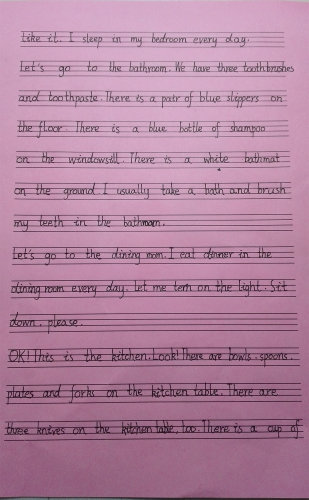 like it. I sleep in my bedroom every day.
Let's go to the bathroom. We have three toothbrushes
and toothpaste. There is a pair of blue slippers on
the floor. There is a blue bottle of shampoo
on the windowsill. There is a white bathmat
on the ground. I usually take a bath and brush
my teeth in the bathroom.
Let's go to the dining room. I eat dinner in the
dining room every day. Let me tern on the light. Sit
down, please.
OK! This is the kitchen. Look! There are bowls, spoons,
plates and forks on the kitchen table. There are
three knives on the kitchen table, too. There is a cup of